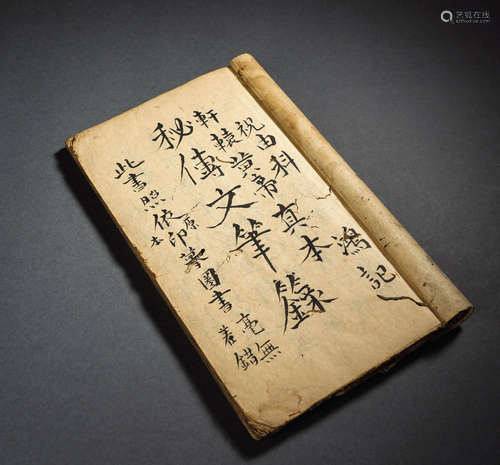 祝由科
鴻記
軒轅黃帝真本
秘傳文筆籙
此書照依原本印摹圖書毫無差錯
艺狐在线